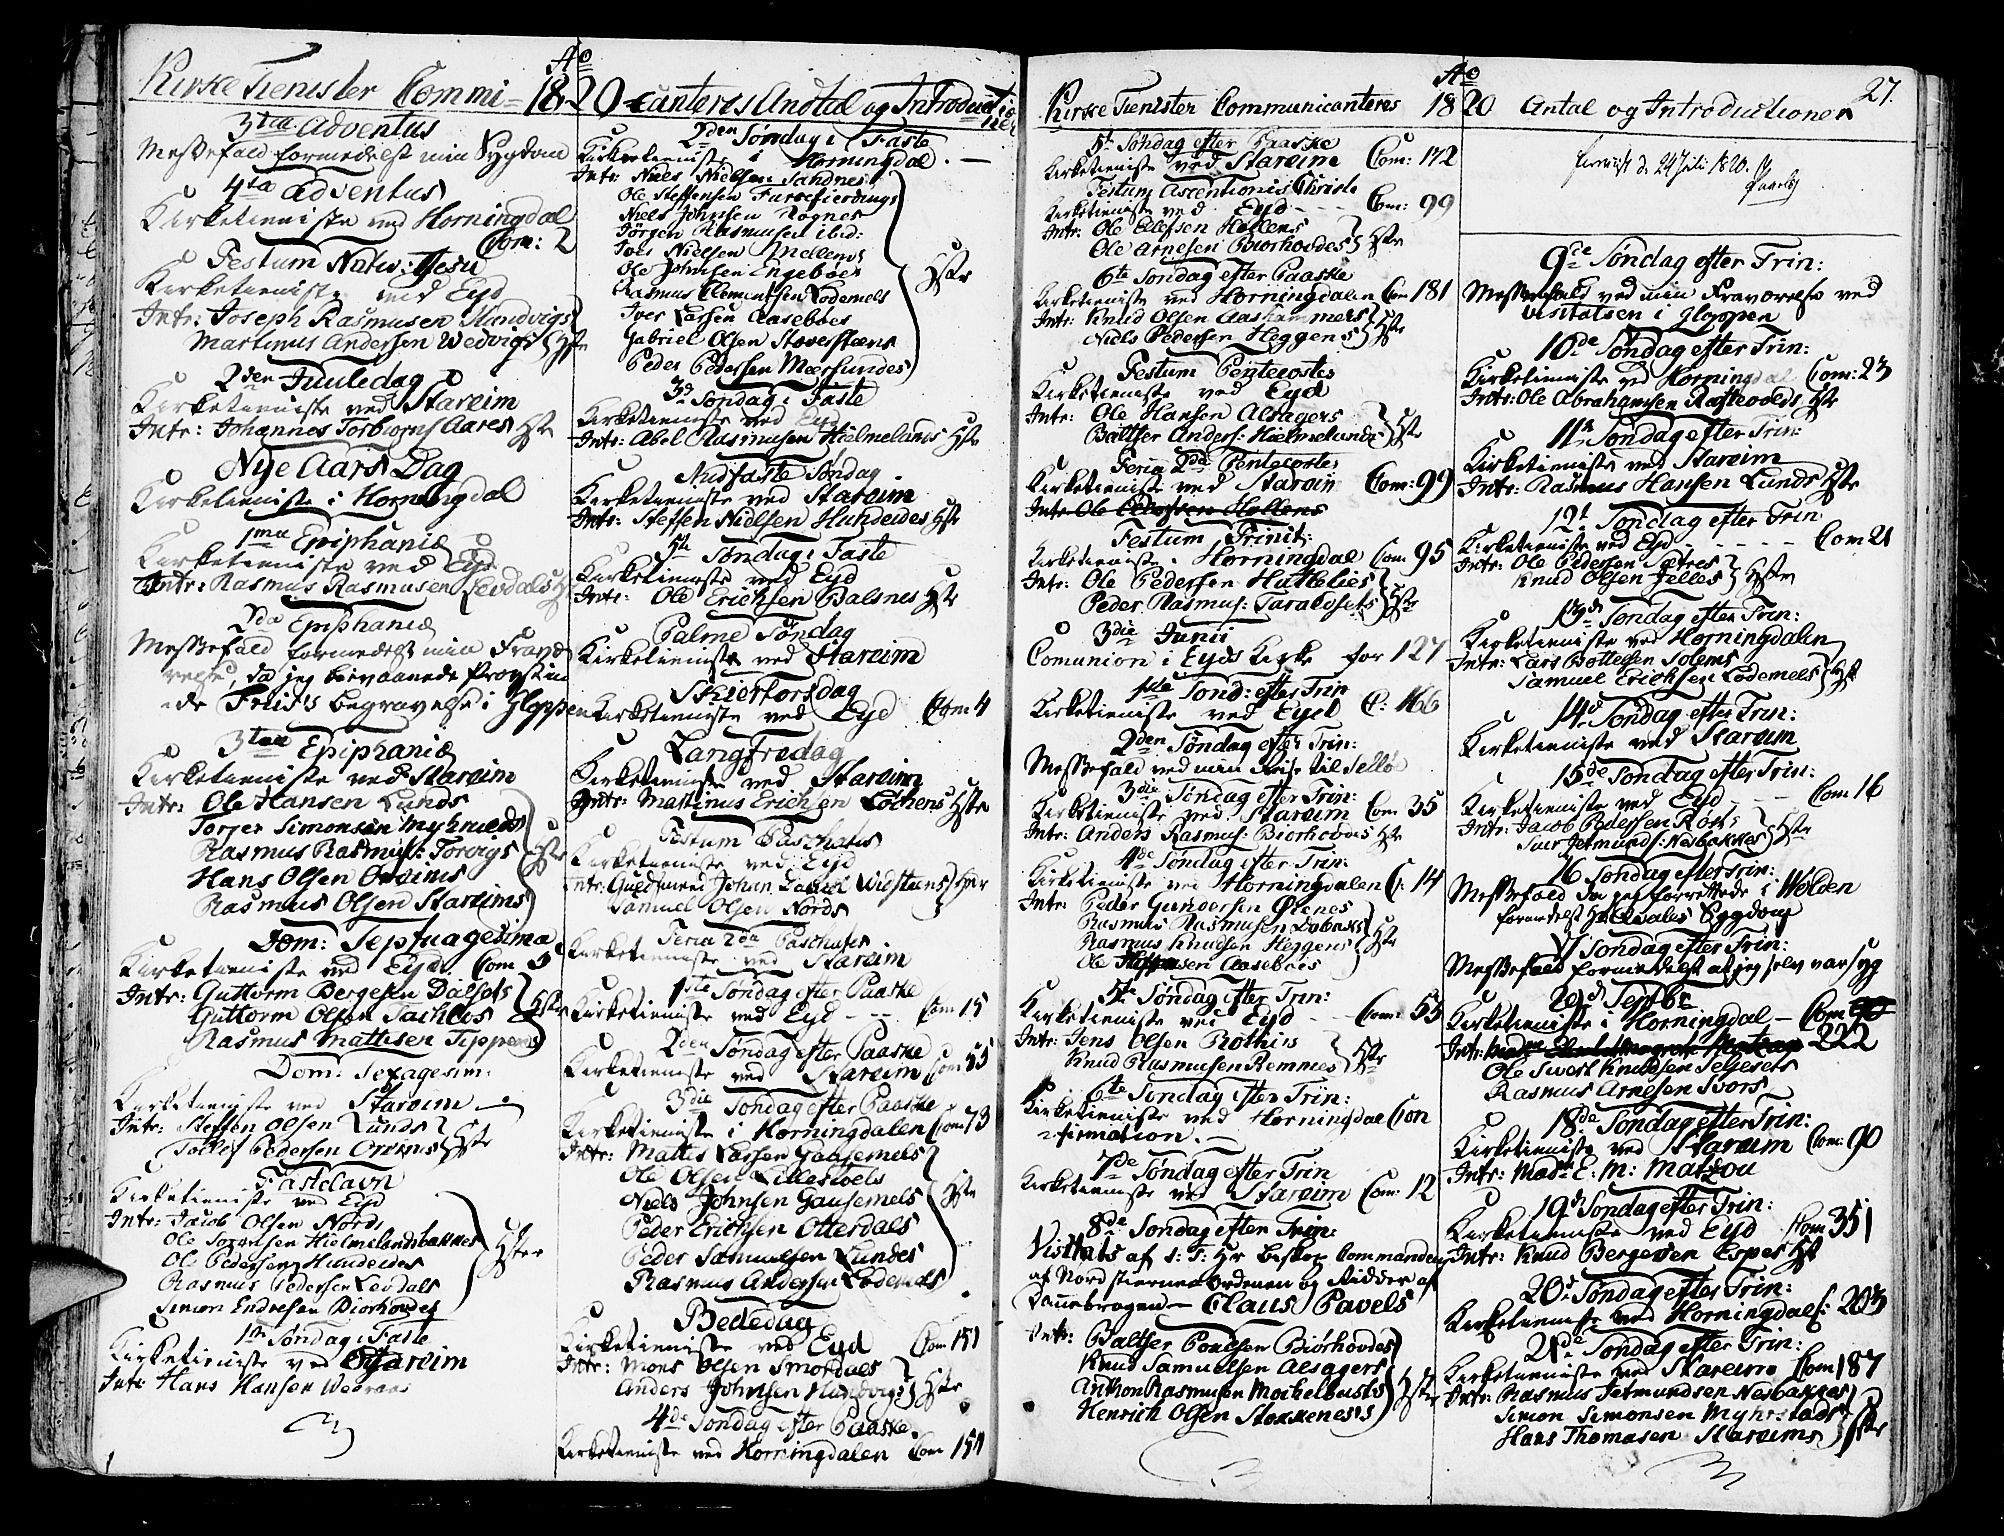 Kirke Tienister Commi= Ao 1820 =canteres Andtal og Introductioner
3tia Adventus
Messefald formedelst min Sygdom
4ta Adventus
Kirketieniste ved Horningdal
Com: 2
Festum Nativ: Jesu
Kirketieniste ved Eyd
Intr: Joseph Rasmusen Hundvigs
Martinus Andersen Wedvigs Hstr
2den Juuledag
Kirketieniste ved Stareim
Intr: Johannes Torbiørns Aares Hstr
Nye Aars Dag
Kirketieniste i Horningdal
1ma Epiphaniæ
Kirketieniste ved Eyd
Intr: Rasmus Rasmusen Levdals Hst
2da Epiphaniæ
Messefald formedelst min Fravæ
relse, da jeg bievaanede Provstin
de Friis's begravelse i Gloppen
3tia Epiphaniæ
Kirketieniste ved Stareim
Intr: Ole Hansen Lunds
Torger Simonsen Myhrulds
Rasmus Rasmus: Torvigs Hstr
Hans Olsen Oreims
Rasmus Olsen Stareims
Dom: Septuagesima
Kirketieniste ved Eyd Com 5
Intr: Guttorm Bergesen Dalsets
Guttorm Olsen Hstr
Rasmus Mattisen
Dom: Sexagesim:
Kirketieniste ved Stareim
Intr: Steffen Olsen Lunds
Tollef Pedersen Oreims Hstr
Fastelavn
Kirketieniste ved Eyd
Intr: Jacob Olsen Nords
Ole Hielmelandsbakkes
Ole Pedersen Hundeides Hstr
Rasmus Pedersen Levdals
Simon Endresen Biorhovdes
1ste Søndag i Faste
Kirketieniste ved Stareim
Intr: Hans Hansen
2den Søndag i Faste
Kirketieniste i Horningdal. —
Intr: Niels Nielsen Sandnes
Ole Steffensen
Niels Johnsen Rognes
Jörgen Rasmusen ibid:
Ioes Nielsen Mellems
Ole Johnsen Engebøes Hstr
Rasmus Clementsen Lødemels
Iver Larsen Aasebøes
Gabriel Olsen Støversteens
Peder Pedersen Meersundes
3d Søndag i Faste
Kirketieniste ved Eyd
Intr: Abel Rasmusen Hielmelands Hstr
Midfaste Søndag
Kirketieniste ved Stareim
Intr: Steffen Nielsen Hundeides Hstr
5te Søndag i Faste
Kirketieniste ved Eyd
Intr: Ole Erichsen Balsnes Hstr
Palme Søndag
Kirketieniste ved Stareim
Skiertorsdag
Kirketieniste ved Eyd Com 4
Langfredag
Kirketieniste ved Stareim
Intr: Martinus Erichsen Løchens Hstr
Festum Paschatis
Kirketieniste ved Eyd
Intr: Guldsmed Johan Daniel Widsteens
Samuel Olsen Nords
Feria 2da Paschatis
Kirketieniste ved Stareim
1ste Søndag efter Paaske
Kirketieniste ved Eyd - - Com 15
2den Søndag efter Paaske
Kirketieniste ved Stareim Com 55
3die Søndag efter Paaske
Kirketieniste i Horningdalen Com 73
Intr: Mattis Larsen Gausemels
Ole Olsen Lillestøels
Niels Johnsen Gausemels Hstr
Peder Erichsen Otterdals
Peder Samuelsen Lundes
Rasmus Andersen Lødemels
Bededag
Kirketieniste ved Eyd Com 151
Intr: Mons Olsen Smördals
Anders Johnsen Hundvigs Hstr
4de Søndag efter Paaske.
Kirketieniste ved Horningdalen Com 154
Kirke Tienister Communicanteres Ao 1820 Antal og Introductioner 27.
5te Søndag efter Paaske
Kirketieniste ved Stareim Com: 172
Festum Ascentionis Christi
Kirketieniste ved Eyd - - - Com: 99
Intr: Ole Ellefsen Hollens
Ole Arnesen Biorhovdes Hstr
6te Søndag efter Paaske
Kirketieniste ved Horningdalen Com 181
Intr: Knud Olsen Aashammers
Niels Pedersen Heggens Hstr
Festum Pentecostes
Kirketieniste ved Eyd
Intr: Ole Hansen Alsagers
Baltser Anders: Hielmelands Hstr
Feria 2da Pentecostes
Kirketieniste ved Stareim Com: 99
Intr Ole Ellefsen Hollens
Festum Trinit:
Kirketieniste i Horningdal Com 95
Intr: Ole Pedersen Huttelies
Peder Rasmus: Taraldsets Hstr
3die Junii
Comunion i Eyds Kirke for 127
1ste Sønd: efter Trin
Kirketieniste ved Eyd C: 166
2den Søndag efter Trin:
Messefald ved min Reise til Selløe
3die Søndag efter Trin:
Kirketieniste ved Stareim Com 35
Intr: Anders Rasmus: Biorhovdes Hstr
4de Søndag efter Trin:
Kirketieniste ved Horningdalen C: 14
Intr: Peder Gundersen Øienes
Rasmus Rasmusen
Rasmus Knudsen Heggens Hstr
Ole Aasebøes
5te Søndag efter Trin:
Kirketieniste ved Eyd - - Com: 55
Intr: Jens Olsen Rothis
Knud Rasmusen Remmes Hstr
6te Søndag efter Trin:
Kirketieniste ved Horningdal Con
=firmation. —
7de Søndag efter Trin
Kirketieniste ved Stareim Com: 12
8de Søndag efter Trin:
Visitats af S: T: Hr Biskop Commandeur
af Nordstierne Ordenen og Ridder af
Dannebrogen — Claus Pavels
Intr: Baltser Poulsen Biørhovdes
Knud Samuelsen Alsagers
Anthon Rasmusen Mockelbusts Hstr
Henrich Olsen Stokkenes's
d. 24 Juli 1820.
Pavels
9de Søndag efter Trin:
Messefald ved min Fraværelse ved
Visitatsen i Gloppen
10de Søndag efter Trin:
Kirketieniste ved Horningdal Com: 23
Intr: Ole Abrahamsen Hstr
11te Søndag efter Trin:
Kirketieniste ved Stareim
Intr: Rasmus Hansen Lunds Hstr
12te Søndag efter Trin
Kirketieniste ved Eyd - - - - - Com 21
Intr: Ole Pedersen Sætres
Knud Olsen Jelles Hstr
13de Søndag efter Trin:
Kirketieniste ved Horningdalen
Intr: Lars Bottelsen Solems
Samuel Erichsen Lødemels Hstr
14d Søndag efter Trin:
Kirketieniste ved Stareim
15de Søndag efter Trin:
Kirketieniste ved Eyd - - - Com 16
Intr: Jacob Pedersen
Iver Jetmunds: Nesbakkes Hstr
16 Søndag efter Trin:
Messefald da jeg forrettede i Welden
formedelst Hr Qvales Sygdom
17 Søndag efter Trin:
Messefald formedelst at jeg selv var syg
Septbr
Kirketieniste i Horningdal — Com 222
Ole Siverts Knudsen
Rasmus Arnesen Svors
18de Søndag efter Trin:
Kirketieniste ved Stareim Com: 90
Intr: Mad: E: M: Matzou
19d Søndag efter Trin:
Kirketieniste ved Eyd Com 351
Intr: Knud Bergesen Espes Hst
20d Søndag efter Trin:
Kirketieniste ved Horningdal C: 203
21de Søndag efter Trin:
Kirketieniste ved Stareim Com 187
Intr: Rasmus Jetmundsen Nesbakkes
Simon Simonsen Myhrstads Hstr
Hans Thomasen Stareims